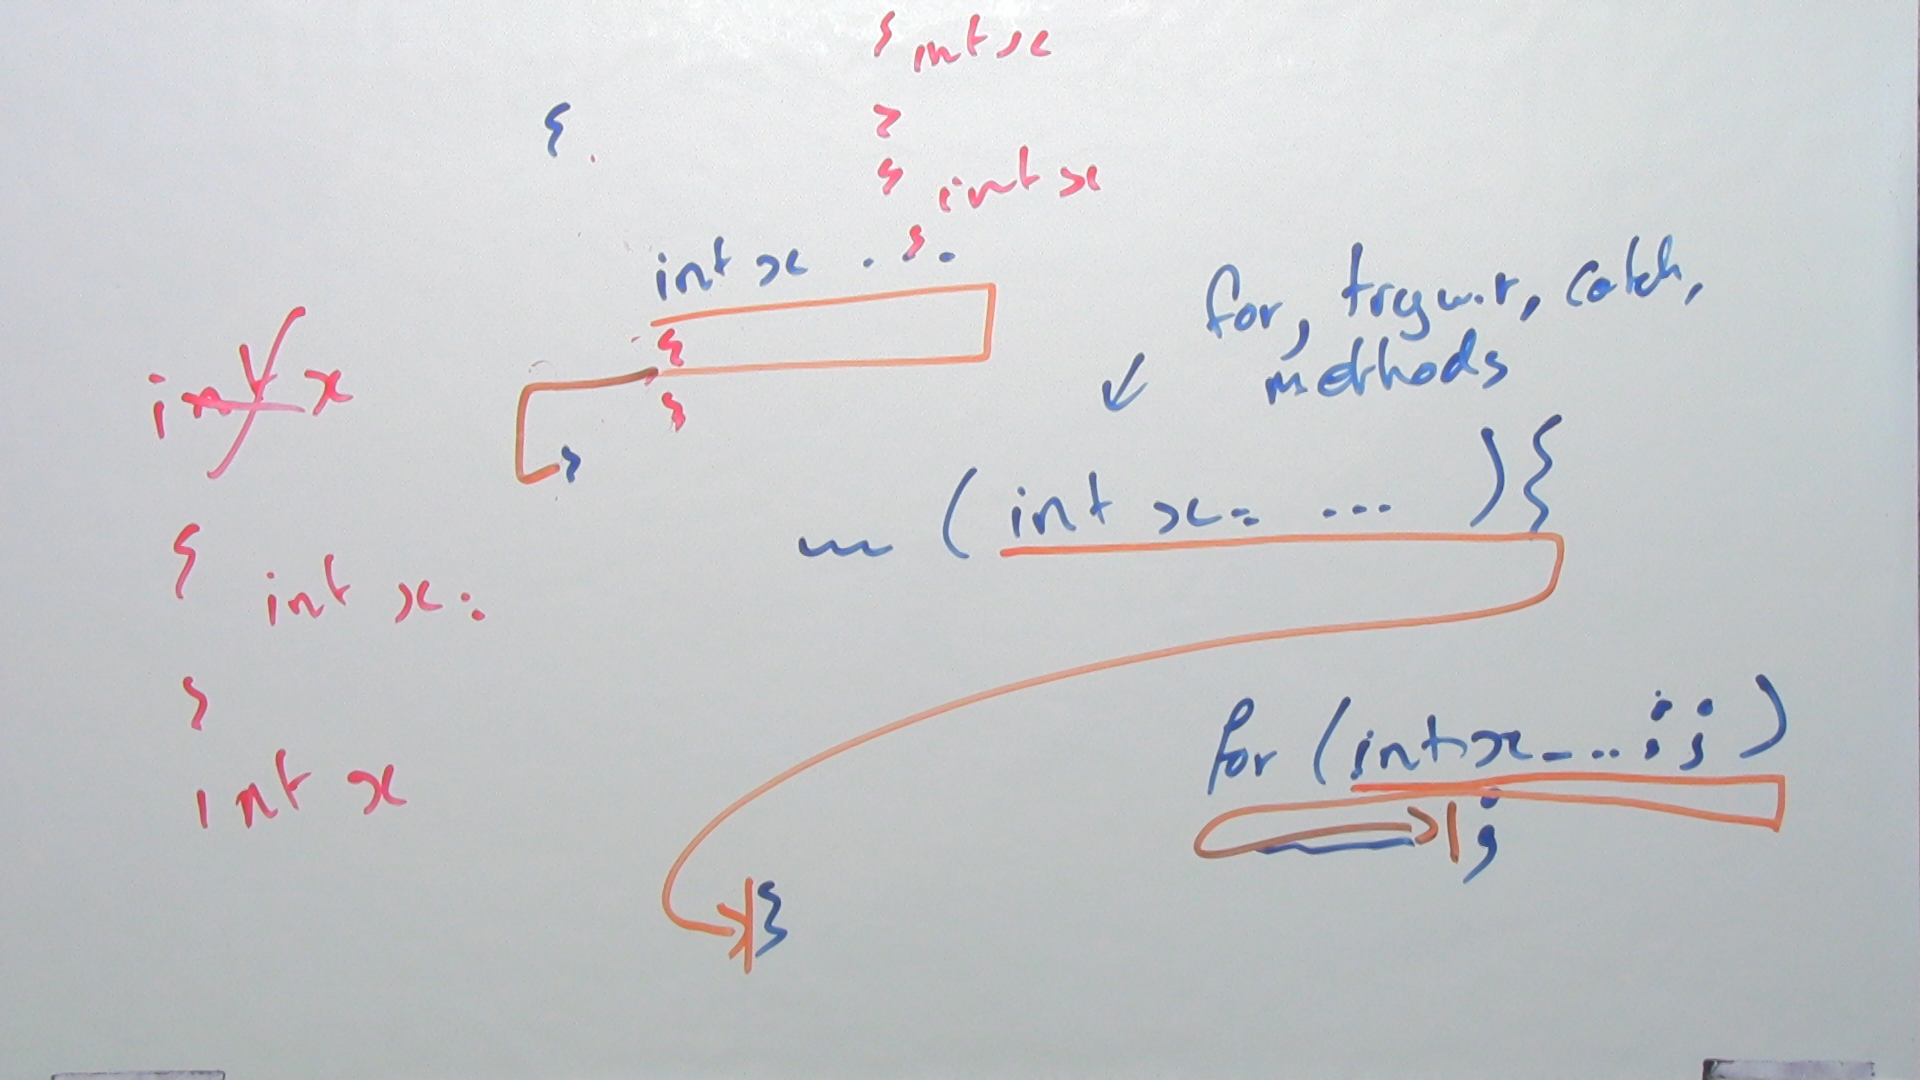 { int x
}
{ int x
}
{
int x . . .
{
}
}
int x
{
int x =
}
int x
for, try w.r, catch,
methods
~ ( int x = ... ) {
}
for ( int x = ... ; ; )
;